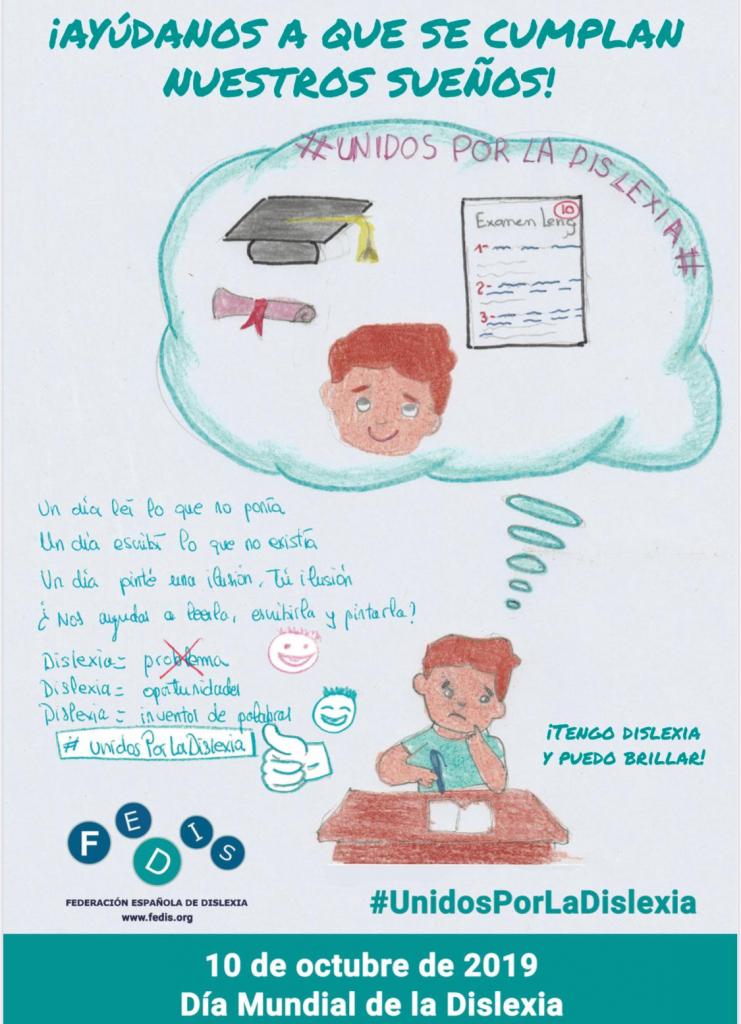 ¡AYÚDANOS A QUE SE CUMPLAN
NUESTROS SUEÑOS!
#UNIDOS POR LA DISLEXIA#
Examen Leng
10
1-
2-
3-
Un día leí lo que no ponía
Un día escribí lo que no existía
Un día pinté una ilusión, Tú ilusión
¿Nos ayudas a leerla, escribirla y pintarla?
Dislexia= problema
Dislexia= oportunidades
Dislexia= inventor de palabras
# unidos Por La Dislexia
¡TENGO DISLEXIA
Y PUEDO BRILLAR!
FEDIS
FEDERACIÓN ESPAÑOLA DE DISLEXIA
www.fedis.org
#UnidosPorLaDislexia
10 de octubre de 2019
Día Mundial de la Dislexia